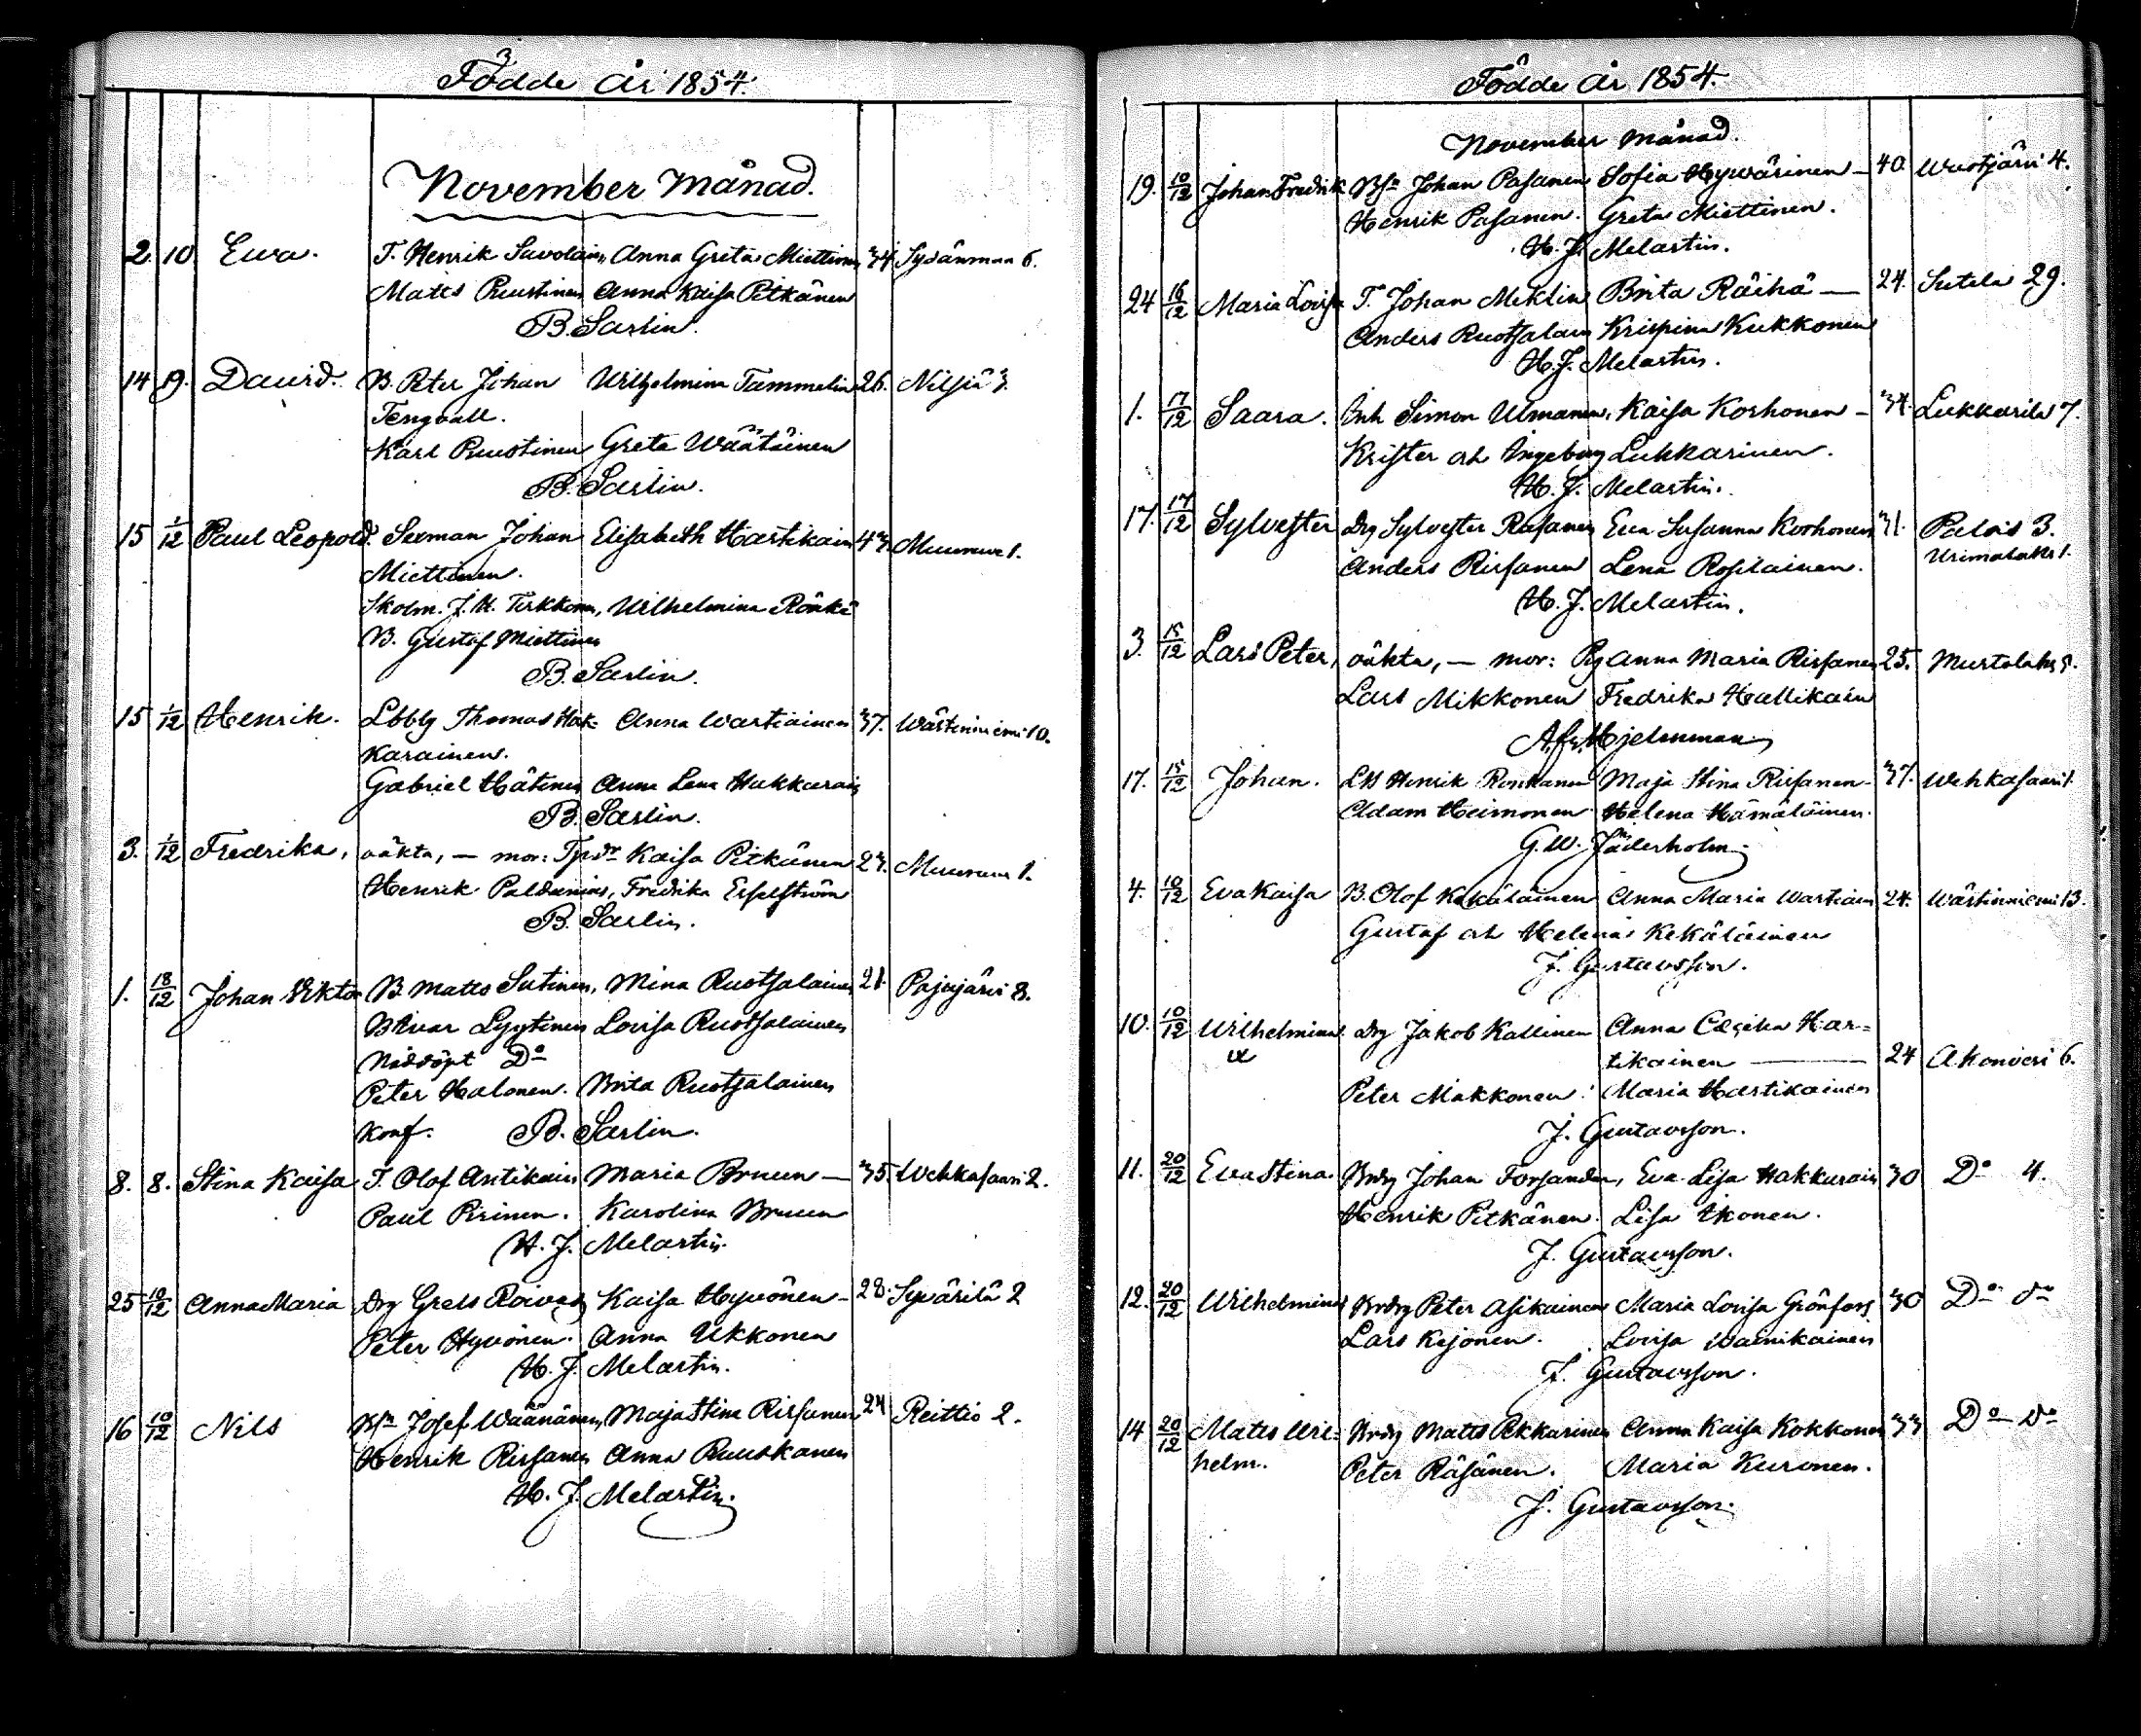 Födde År 1854.
November Månad.
2. 10 Ewa. T. Henrik Savolain, Anna Greta Miettinen 34 Sydänmaa 6.
Matts Ruustinen Anna Kaisa Pitkänen
B. Sarlin.
14 19. David. B. Peter Johan Wilhelmina Tammelin 26. Nilsiä 3.
Tengvall.
Karl Ruustinen Greta Wäätäinen
B. Sarlin.
15 1/12 Paul Leopold. Sexman Johan Elisabeth Hartikain 43. Muuruve 1.
Miettinen.
Skolm. J. H. Tirkkonen, Wilhelmina Rönkä
B. Gustaf Miettinen
B. Sarlin.
15 1/12 Henrik. Lbblg Thomas Hak- Anna Wartiainen 37. Wästinniemi 10.
karainen.
Gabriel Hätinen Anna Lena Hakkarain
B. Sarlin.
3. 1/12 Fredrika, oäkta, — mor: Kaisa Pitkänen 23. Muuruve 1.
Henrik Paldanius, Fredrika
B. Sarlin.
1. 18/12 Johan Viktor B. Matts Sutinen, Mina Ruotsalainen 21. Pajujärvi 8.
Lyytinen Lovisa Ruotsalainen
Nöddöpt Do
Peter Halonen. Brita Ruotsalainen
Konf. B. Sarlin.
8. 8. Stina Kaisa T. Olof Antikain Maria Bruun — 35. Wehkasaari 2.
Paul Pirinen. Karolina Bruun
H. J. Melartin.
25 10/12 Anna Maria Drg Grels Kaisa Hyvönen - 28. Syvärilä 2
Peter Hyvönen. Anna Ukkonen
H. J. Melartin.
16 10/12 Nils Bsn Josef Wäänänen, Maja Stina Rissanen 24 Reittiö 2.
Henrik Rissanen Anna Ruuskanen
H. J. Melartin.
Födde År 1854.
November Månad.
19. 10/12 Johan Fredrik Bsn Johan Pasanen Sofia Hywärinen — 40. Wuotjärvi 4.
Henrik Pasanen. Greta Miettinen.
H. J. Melartin.
24 16/12 Maria Lovisa T. Johan Meklin Brita Räihä — 24. Sutela 29.
Anders Ruotsalain Krispina Kukkonen
H. J. Melartin.
1. 17/12 Saara. Inh Simon Ulmanen, Kaisa Korhonen — 34. Lukkarila 7.
Krister och Ingeborg Lukkarinen.
H. J. Melartin.
17. 17/12 Sylvester Drg Sylvester Rasanen Eva Susanna Korhonen 31. Palois 3.
Urimolaks 1.
Anders Rissanen Lena Rosilainen.
H. J. Melartin.
3. 15/12 Lars Peter, oäkta, — mor: Pig Anna Maria Rissanen 25. Murtolaks 5.
Lars Mikkonen Fredrika Hallikain
Hjelmman
17. 15/12 Johan. Henrik Ronkanen Maja Stina Rissanen - 37. Wehkasaari 1.
Adam Heimonen Helena Hämäläinen.
G. W. Jäderholm
4. 10/12 Eva Kaisa B. Olof Kekäläinen Anna Maria Wartiain 24. Wästinniemi 13.
Gustaf och Helena Kekäläinen
J. Gustavsson.
10. 10/12 Wilhelmina Drg Jakob Kallinen Anna Cecilia Har=
ux tikainen — 24 Akonvesi 6.
Peter Makkonen. Maria Hartikainen
J. Gustavsson.
11. 20/12 Eva Stina Brdrg Johan Forsander, Eva Lisa Hakkarain 30 Do 4.
Henrik Pitkänen. Lisa Ikonen.
J. Gustavsson.
12. 20/12 Wilhelmina Brdrg Peter Asikainen Maria Lovisa Grönfors 30 Do do
Lars Kejonen. Lovisa Wainikainen
J. Gustavsson.
14 20/12 Matts Wil= Brdrg Matts Pekkarinen Anna Kaisa Kokkonen 33 Do do
helm. Peter Räsänen. Maria Kuronen.
J. Gustavsson.